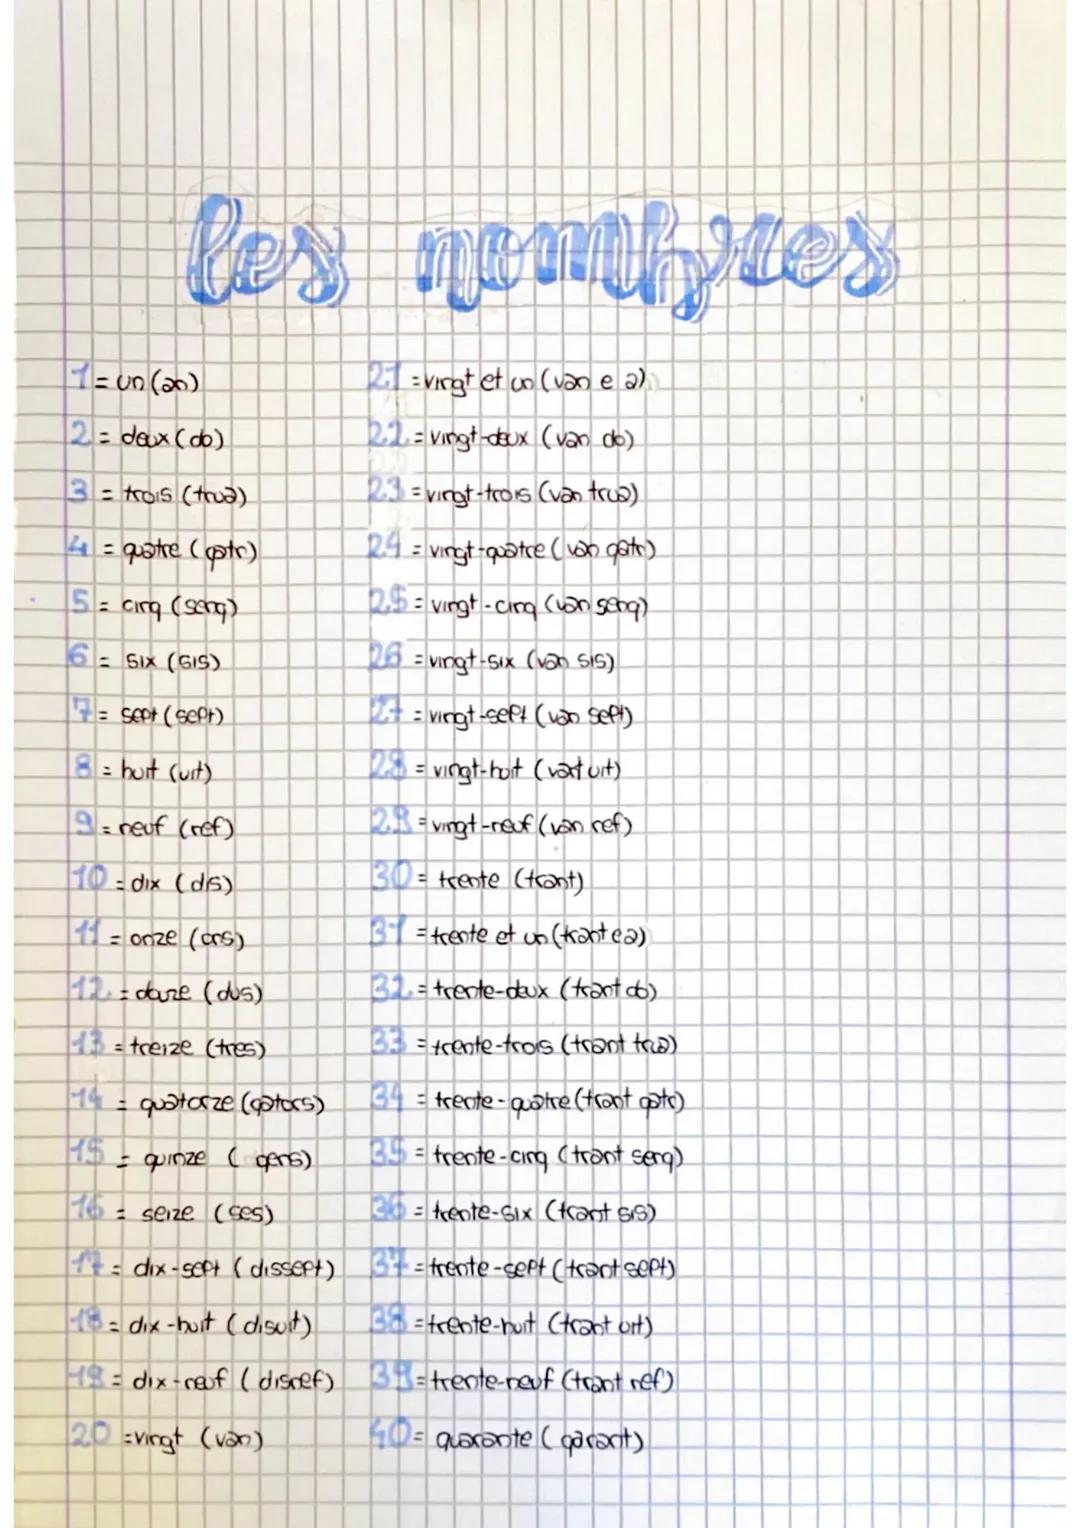 les nombres
1 = un (an)
2 = deux (do)
3 = trois (trua)
4 = quatre (qatr)
5 = cinq (senq)
6 = six (sis)
7 = sept (sept)
8 = huit (uit)
9 = neuf (nef)
10 = dix (dis)
11 = onze (ons)
12 = douze (dus)
13 = treize (tres)
14 = quatorze (qators)
15 = quinze (qens)
16 = seize (ses)
17 = dix-sept (dissept)
18 = dix-huit (disuit)
19 = dix-neuf (disnef)
20 = vingt (van)
21 = vingt et un (van e a)
22 = vingt-deux (van do)
23 = vingt-trois (van trua)
24 = vingt-quatre (van qatr)
25 = vingt-cinq (van senq)
26 = vingt-six (van sis)
27 = vingt-sept (van sept)
28 = vingt-huit (vant uit)
29 = vingt-neuf (van nef)
30 = trente (trant)
31 = trente et un (trant e a)
32 = trente-deux (trant do)
33 = trente-trois (trant trua)
34 = trente-quatre (trant qatr)
35 = trente-cinq (trant senq)
36 = trente-six (trant sis)
37 = trente-sept (trant sept)
38 = trente-huit (trant uit)
39 = trente-neuf (trant nef)
40 = quarante (qarant)